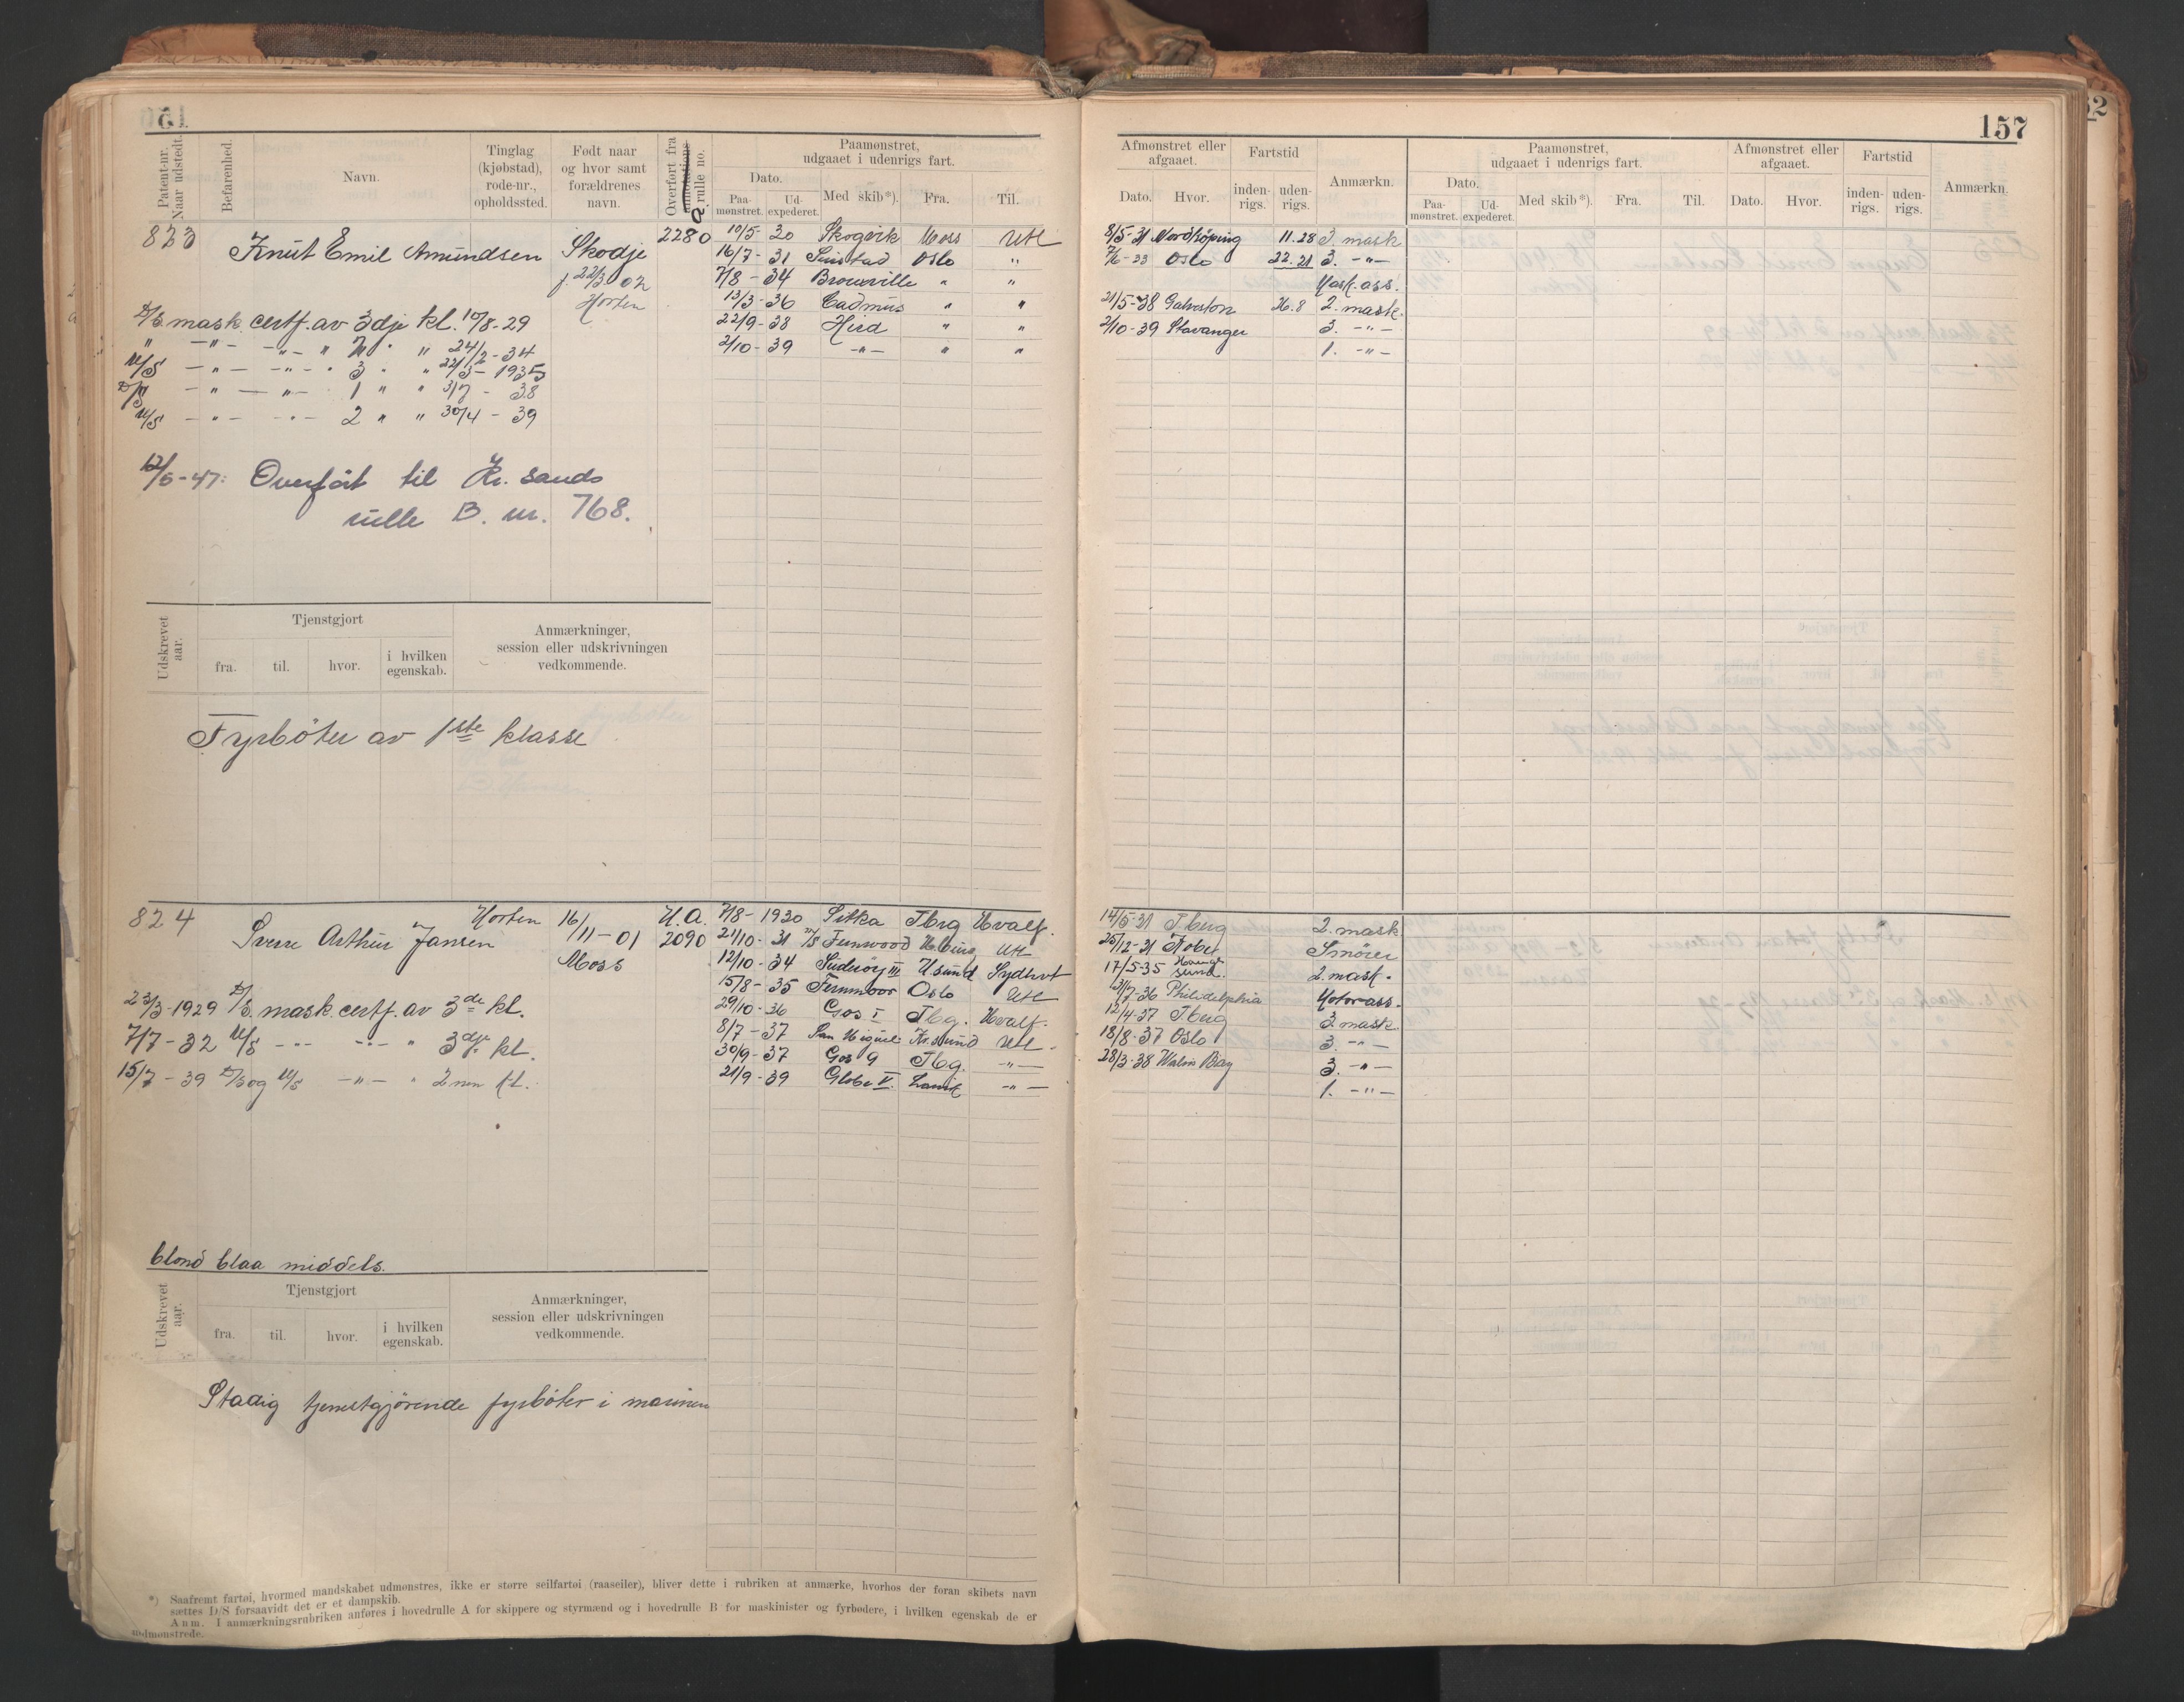 157
Patent-nr. Naar udstedt.
Befarenhed.
Navn.
Tinglag (kjøbstad), rode-nr., opholdssted.
Født naar og hvor samt forældrenes navn.
Overført fra rulle no.
Paamønstret, udgaaet i udenrigs fart.
Dato.
Paa-mønstret.
Ud-expederet.
Med skib*).
Fra.
Til.
Afmønstret eller afgaaet.
Dato.
Hvor.
Fartstid
inden-rigs.
uden-rigs.
Anmærkn.
Paamønstret, udgaaet i udenrigs fart.
Dato.
Paa-mønstret.
Ud-expederet.
Med skib*).
Fra.
Til.
Afmønstret eller afgaaet.
Dato.
Hvor.
Fartstid
inden-rigs.
uden-rigs.
Anmærkn.
823 Knut Emil Amundsen Skodje 2280
f. 22/3 02
Horten
10/5-30 Skogvik Moss Utl 8/5-31 Nordköping 11.28 3. mask
16/7-31 Oslo " 7/6-33 Oslo 22.21 3. -"-
7/8-34 Brouville " " Mask.ass.
13/3-36 Cadmus " " 21/5-38 Galveston 26.8 2. mask.
22/9-38 Hird " " 2/10-39 Stavanger 3. -"-
2/10-39 -"- " " 1. -"-
D/S mask. certf. av 3dje kl. 10/8-29
" -"- -"- " 2 " " 24/2-34
M/S -"- -"- " 3 " " 22/3-1935
D/S -"- -"- 1 " " 3/7-38
M/S -"- -"- 2 " " 30/4-39
12/6-47: Overført til Kr. sands
rulle B. nr. 768.
Udskrevet aar.
Tjenstgjort
fra.
til.
hvor.
i hvilken egenskab.
Anmærkninger, session eller udskrivningen vedkommende.
Fyrböter av 1ste klasse
824 Sverre Arthur Jansen Horten 16/11-01 Moss U.A. 2090
7/8-1930 Sitka Tbrg Hvalf. 14/5-31 Tberg 2. mask
21/10-31 M/S Fernwood Utl 25/12-31 Kobe Smører
12/10-34 Suderöy III H.sund Sydhvt 17/5-35 Haugesund. 2. mask.
15/8-35 Fernmoor Oslo Utl 3/7-36 Philidelphia Motorass.
29/10-36 Gos I Tbg. Hvalf. 12/4-37 Tberg 3. mask.
8/7-37 San Miguel Kr.sund Utl 18/8-37 Oslo 3. -"-
30/9-37 Gos 9 Tbg. -"- 28/3-38 Walvis Bay 3. -"-
21/9-39 Globe V. -"- 1. -"-
23/3-1929 D/S. mask. certf. av 3de kl.
7/7-32 M/S -"- -"- " 3dje kl.
15/7-39 D/S og M/S -"- " 2nen kl.
blond blaa middels.
Udskrevet aar.
Tjenstgjort
fra.
til.
hvor.
i hvilken egenskab.
Anmærkninger, session eller udskrivningen vedkommende.
Stadig tjenestgjørende fyrböter i marinen
*) Saafremt fartøi, hvormed mandskabet udmønstres, ikke er større seilfartøi (raaseiler), bliver dette i rubriken at anmærke, hvorhos der foran skibets navn
sættes D/S forsaavidt det er et dampskib.
Anm. I anmærkningsrubriken anføres i hovedrulle A for skippere og styrmænd og i hovedrulle B for maskinister og fyrbødere, i hvilken egenskab de er
udmønstrede.